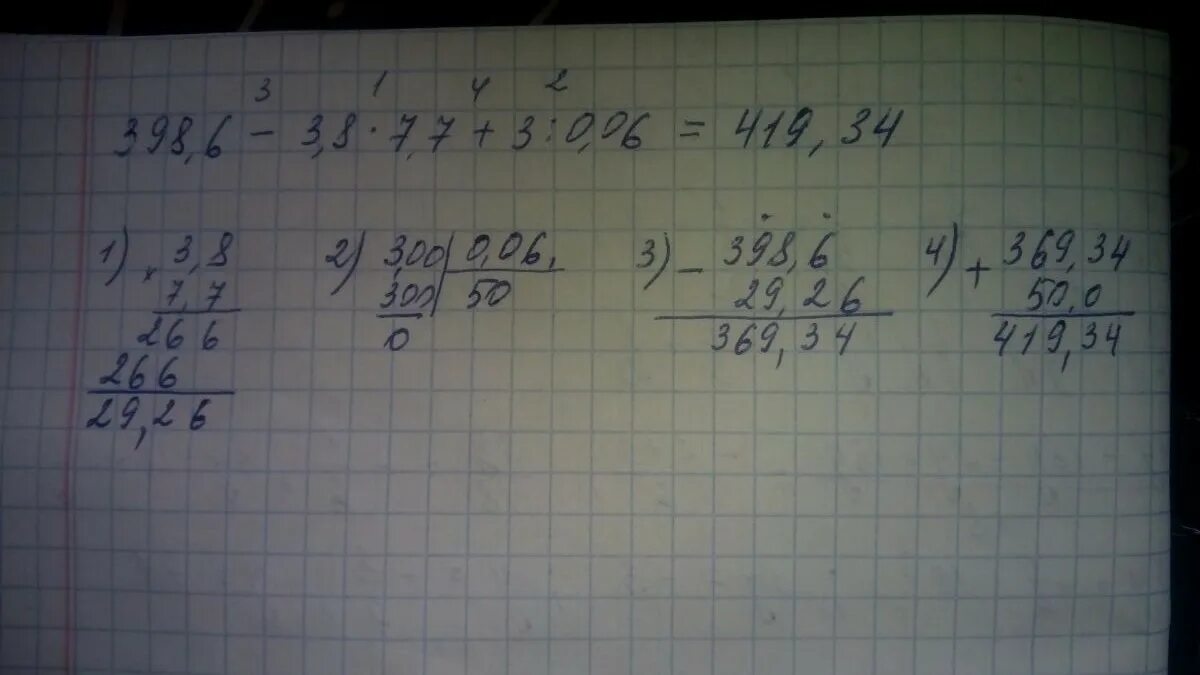 3 1 4 2
398,6 - 3,8 · 7,7 + 3 : 0,06 = 419,34
1) × 3,8
7,7
266
266
29,26
2) 3,00 0,06,
300 50
0
3) - 398,6
29,26
369,34
4) + 369,34
50,0
419,34